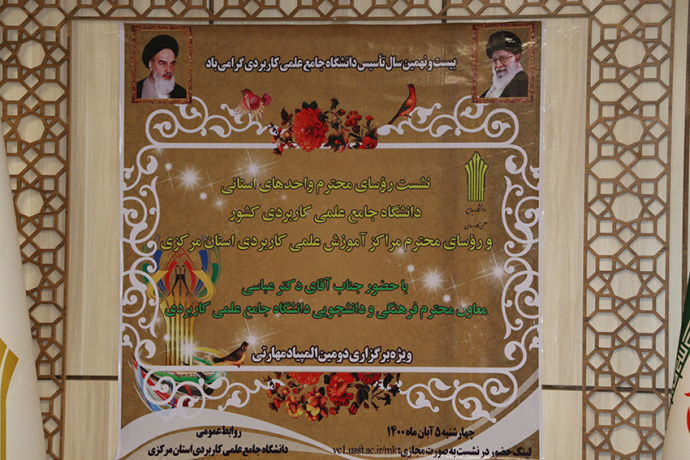 بیست و نهمین سال تأسیس دانشگاه جامع علمی کاربردی گرامی باد
نشست رؤسای محترم واحدهای استانی
دانشگاه جامع علمی کاربردی کشور
و رؤسای محترم مراکز آموزش علمی کاربردی استان مرکزی
دانشگاه جامع
علمی کاربردی
با حضور جناب آقای دکتر عباسی
معاون محترم فرهنگی و دانشجویی دانشگاه جامع علمی کاربردی
ویژه برگزاری دومین المپیاد مهارتی
چهارشنبه ۵ آبان ماه ۱۴۰۰
لینک حضور در نشست به صورت مجازی: vc1.uast.ac.ir/mk
روابط عمومی
دانشگاه جامع علمی کاربردی استان مرکزی